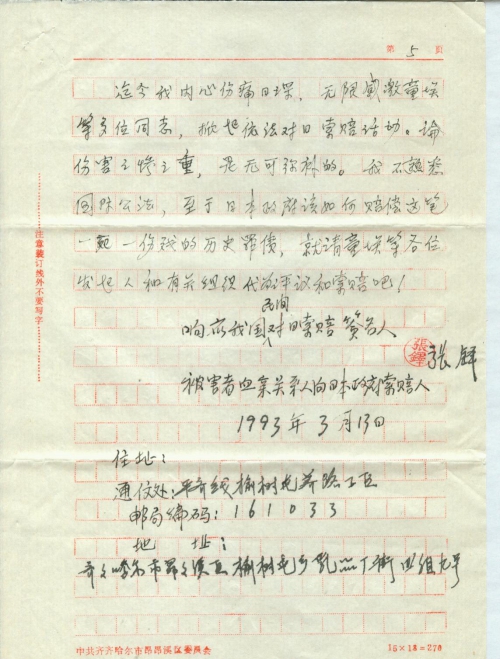 第 5 页
迄今我内心伤痛日深，无限感激童
等多位同志，掀起依法对日索赔活动。论
伤害之惨之重，是无可弥补的。我不熟悉
国际公法，至于日本政府该如何赔偿这笔
一 一 的历史罪债，就请童 等各位
发起人和有关组织代为评议和索赔吧！
响应我国民间对日索赔签名人
張鐸 张铎
被害者血亲关系人向日本政府索赔人
1993年3月13日
住址：
通信处：平齐线榆树屯养路工区
邮局编码：161033
地 址：
齐齐哈尔市昂昂溪区榆树屯 街四组九号
注意装订线外不要写字
中共齐齐哈尔市昂昂溪区委员会
15×18=270